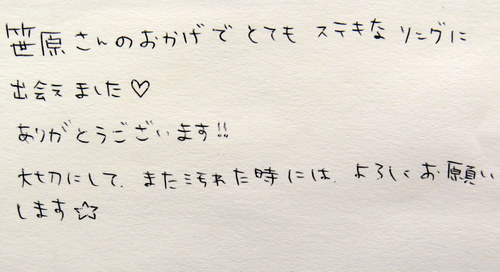 笹原さんのおかげでとてもステキなリングに
出会えました♡
ありがとうございます!!
大切にして、また汚れた時には、よろしくお願い
します☆